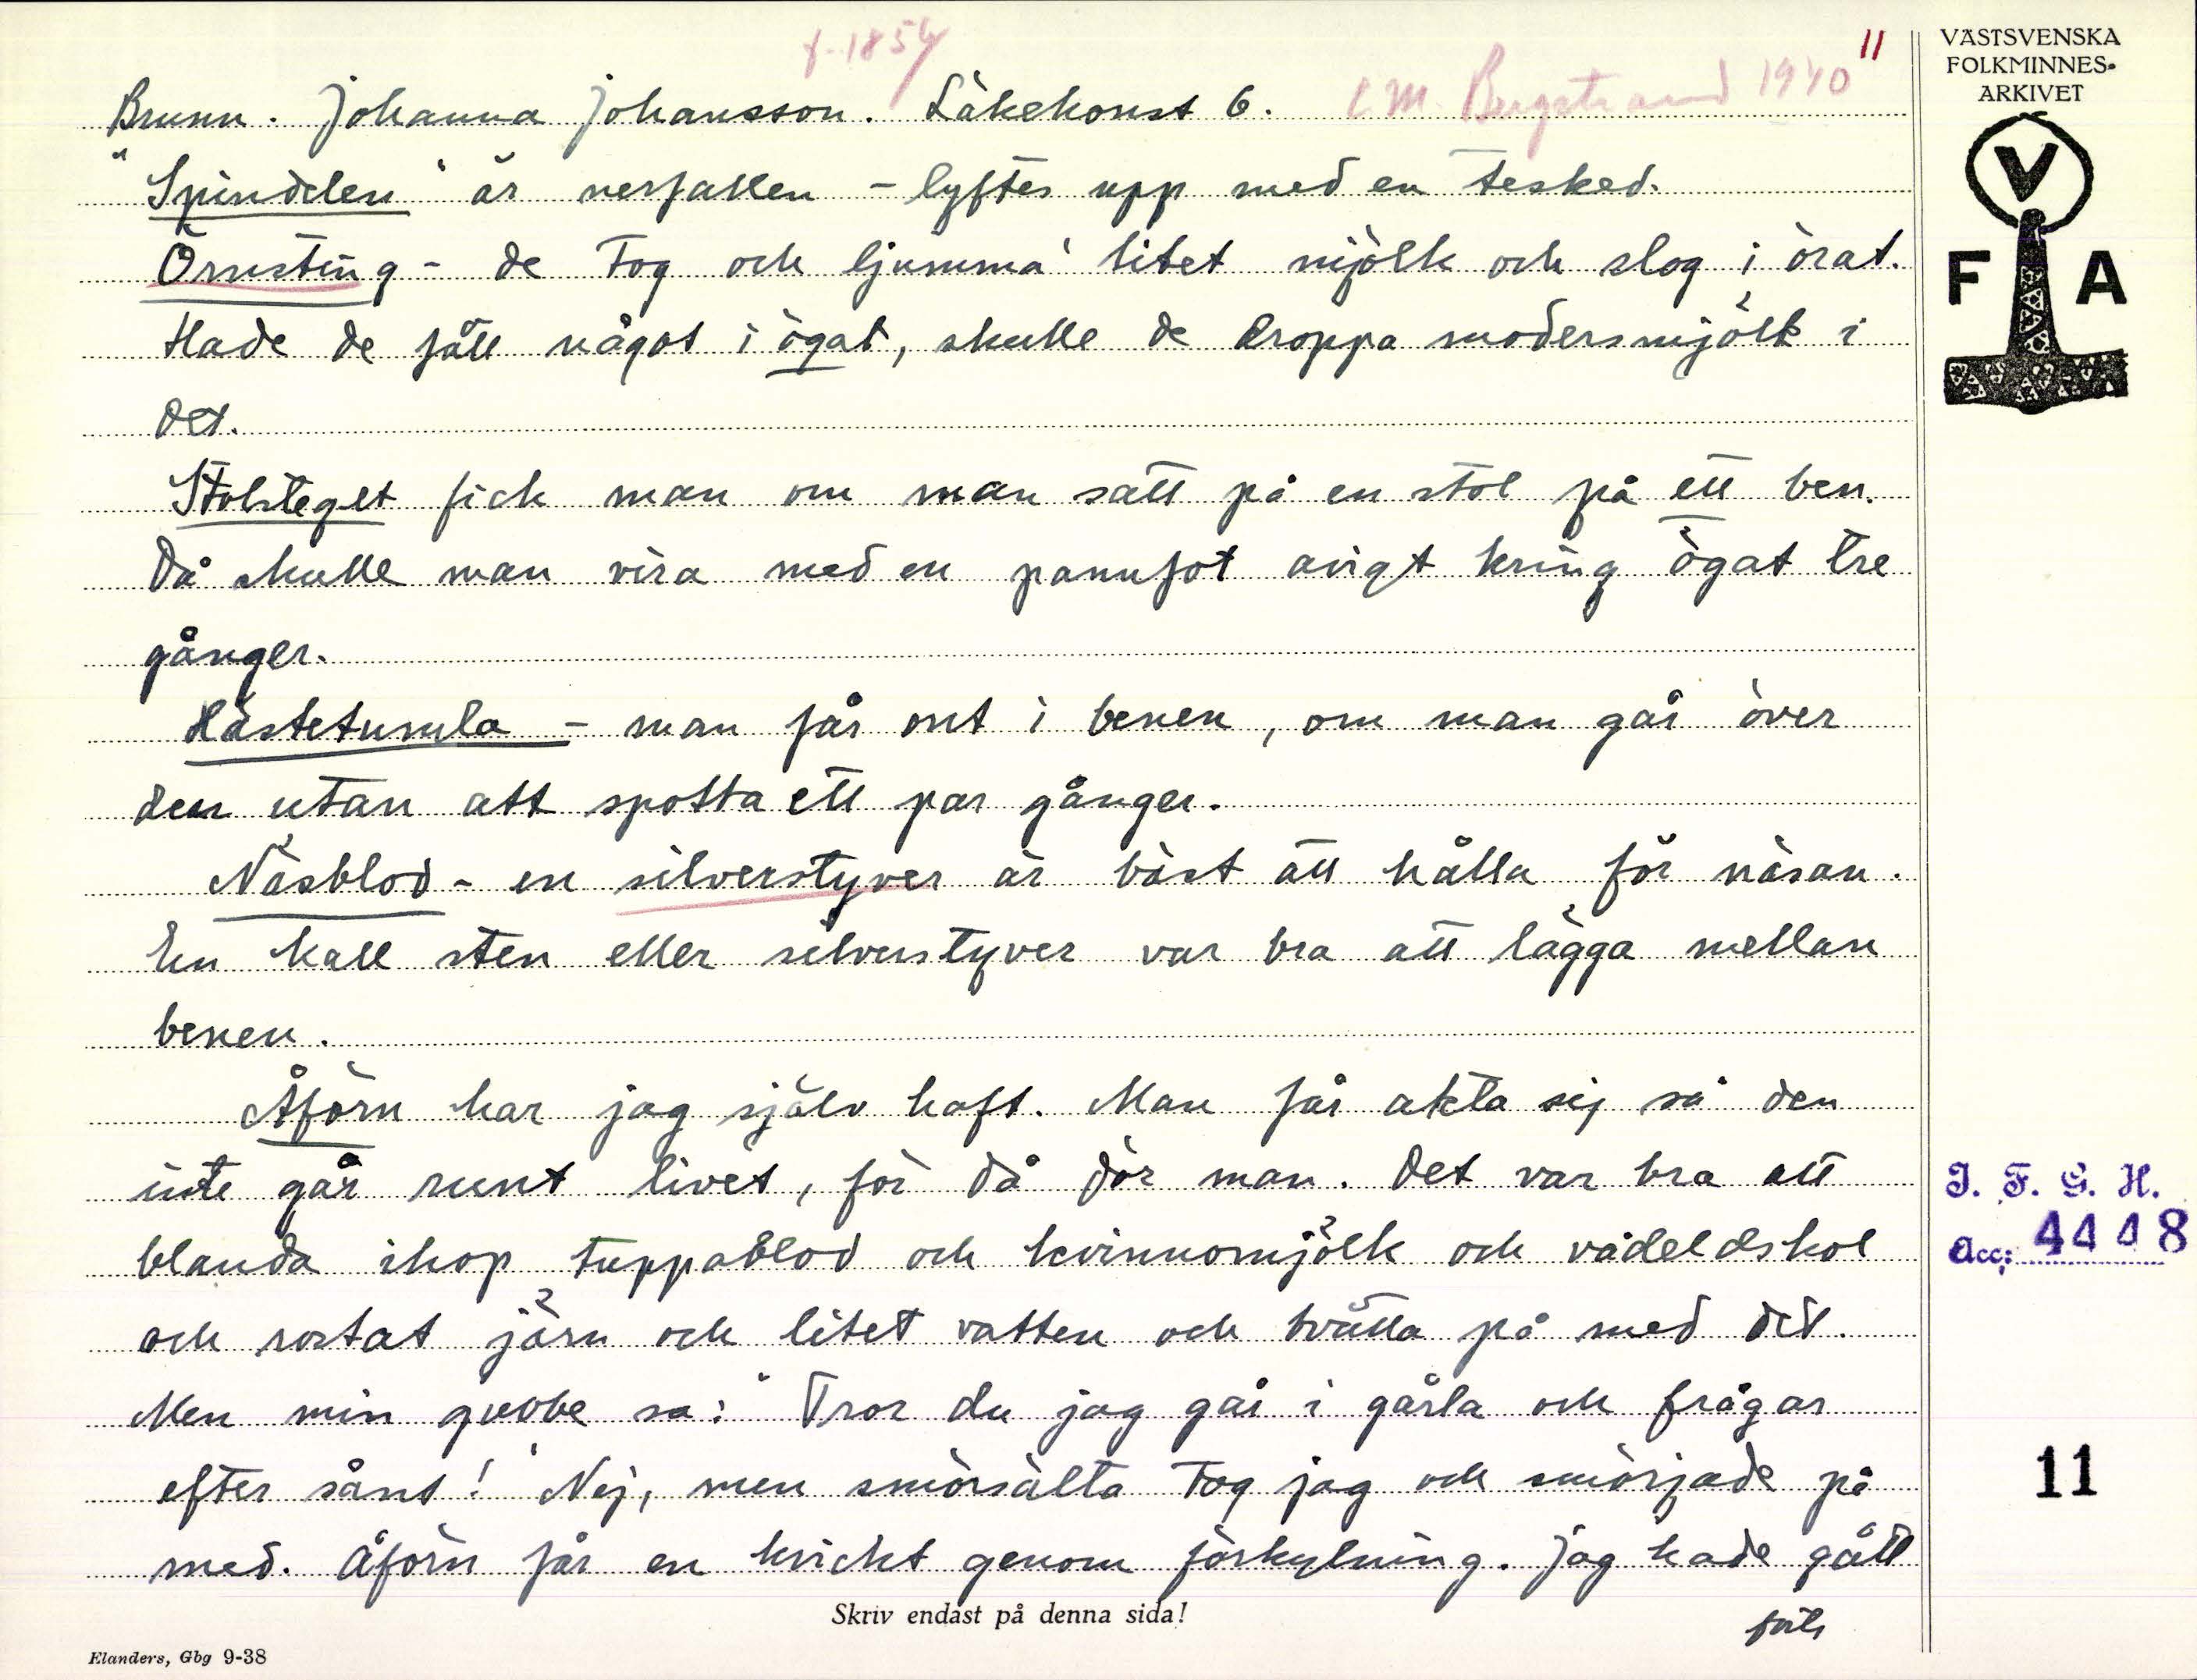 f. 1854
11
Brunn. Johanna Johansson. Läkekonst 6. C M. Bergstrand 1940
"Spindelen" är nerfallen - lyftes upp med en tesked.
Örnsting - de tog och ljumma' litet mjölk och slog i örat.
Hade de fått något i ögat, skulle de droppa modersmjölk i
det.
Stolsteget fick man om man satt på en stol på ett ben.
Då skulle man vira med en pannfot avigt kring ögat tre
gånger.
Hästetumla - man får ont i benen, om man går över
den utan att spotta ett par gånger.
Näsblod - en silverstyver är bäst att hålla för näsan.
En kall sten eller silverstyver var bra att lägga mellan
benen.
Åförn har jag själv haft. Man får akta sig så den
inte går runt livet, för då dör man. Det var bra att
blanda ihop tuppablod och kvinnomjölk och vådeldskol
och rostat järn och litet vatten och tvätta på med det.
Men min gubbe sa: "Tror du jag går i gårla och frågar
efter sånt!" Nej, men smörsälta tog jag och smörjade på
med. Åförn får en kvickt genom förkylning. Jag hade gått
forts
Skriv endast på denna sida!
Elanders, Gbg 9-38
VÄSTSVENSKA
FOLKMINNES-
ARKIVET
V
F A
I. F. G. H.
Acc: 4448
11